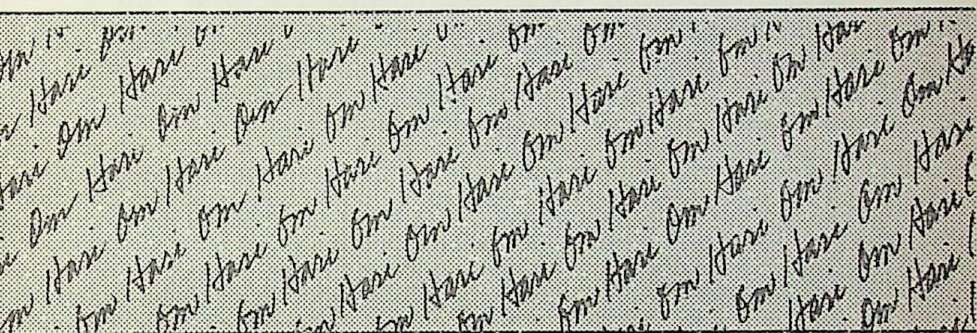 Om
Hari Om
Hari Om Hari
Om Hari Om Hari
Om Hari Om Hari Om Hari
Om Hari Om Hari Om Hari
Om Hari Om Hari Om Hari Om
Om Hari Om Hari Om Hari Om
Om Hari Om Hari Om Hari Om
Om Hari Om Hari Om Hari Om
Om Hari Om Hari Om Hari Om Hari
Om Hari Om Hari Om Hari Om
Om Hari Om Hari Om Ha
Om Hari Om Hari
Hari Om Hari
Om Hari